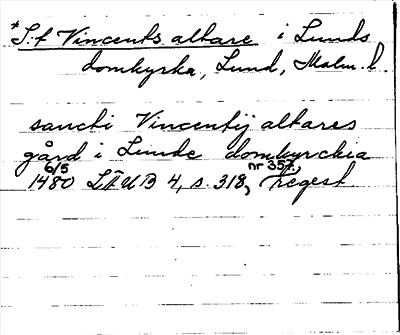 *S:t Vincents altare i Lunds
domkyrka, Lund, Malm. l.
sancti Vincentij altares
gård i Lunde domkyrckia
6/5 nr 357,
1480 LÄUB 4, s. 318, regest